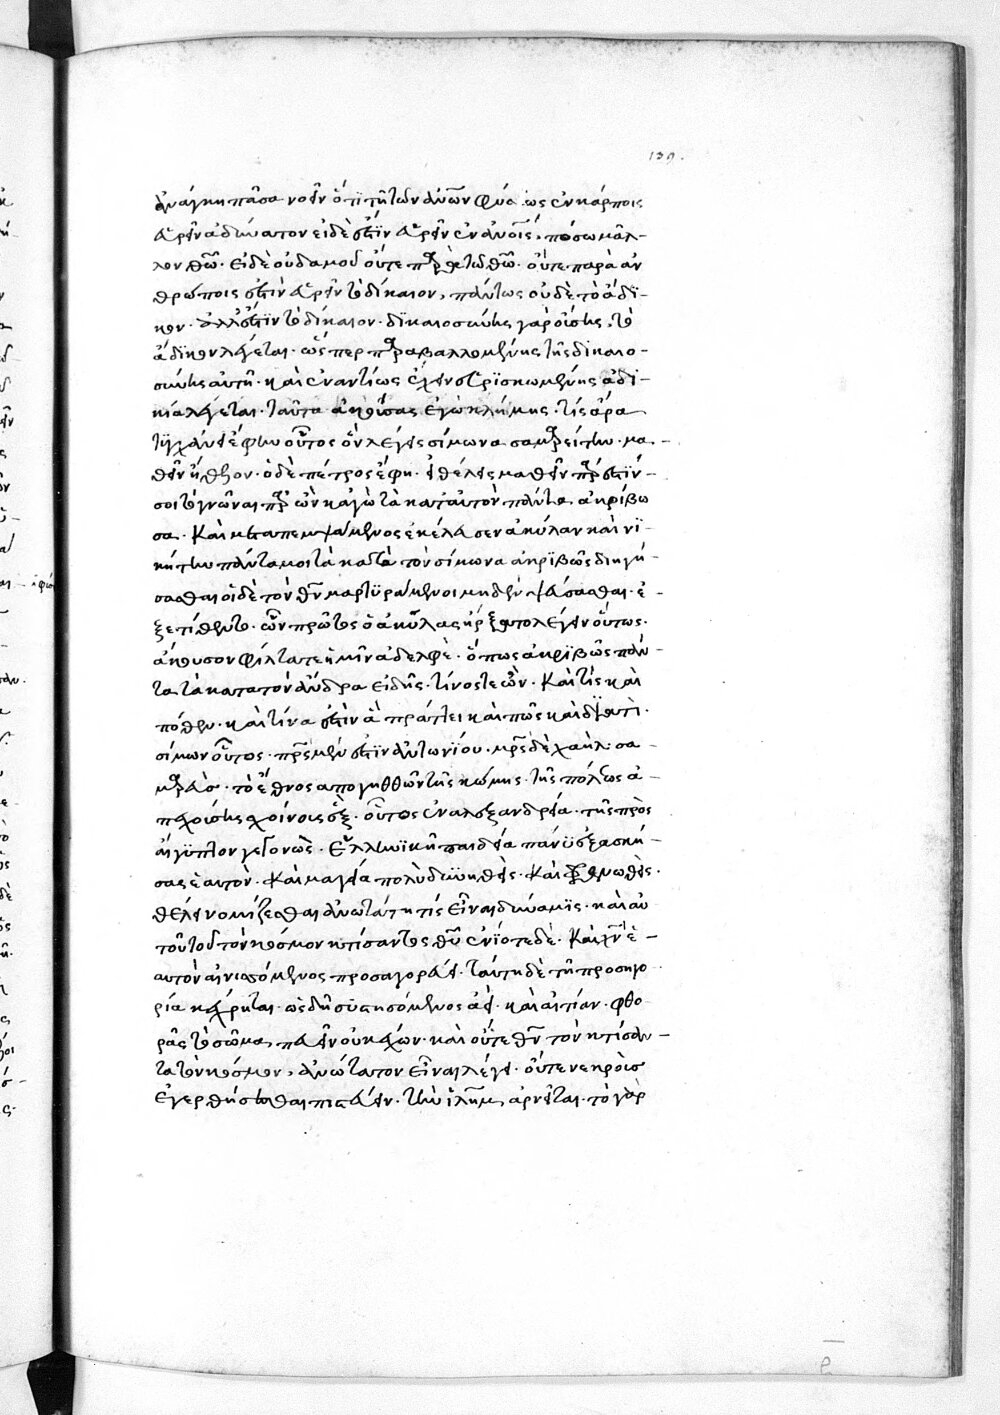 139.
ἀνάγκη πᾶσα νοεῖν ὅτι τῇ τῶν ἀνω̅ν φύσ ὡς ἐν κάρποις
εὑρεῖν ἀδύνατον εἰ δὲ ἔστιν εὑρεῖν ἐν ἀνοις, πόσω μᾶλ-
λον θω̅. εἰ δὲ οὐδαμοῦ οὔτε παρὰ τῶ θω̅. οὔτε παρὰ ἀν
θρώποις ἔστιν εὑρεῖν τὸ δίκαιον, πάντως οὐδὲ τὸ ἄδι-
κον. ἀλλ' ἔστιν τὸ δίκαιον. δικαιοσύνης γὰρ οὔσης, τὸ
ἄδικον λέγεται. ὥς περ παραβαλλομένης τῆς δικαιο-
σύνης αὐτῇ. καὶ ἐναντίως ἔχειν εὑρισκωμένης ἀδι-
κία λέγεται. ταῦτα ἀκούσας ἐγὼ κλήμης. τίς ἄρα
τυγχάνει ἔφην οὗτος ὃν λέγεις σίμωνα σαμαρείτην. μα-
θεῖν ἤθελον. ὁ δὲ πέτρος ἔφη. εἰ θέλεις μαθεῖν πάρεστίν
σοι τὸ γνῶναι παρ' ὧν κἀγὼ τὰ κατ' αὐτὸν πάντα ἀκρίβω
σα. Καὶ μεταπεμψάμενος ἐκέλευσεν ἀκύλαν καὶ νι-
κήτην πάντα μοι τὰ κατὰ τὸν σίμωνα ἀκριβῶς διηγή-
σασθαι οἱ δὲ τὸν θν̅ μαρτυράμενοι μηδὲν ψεύσασθαι. ἐ-
ξετίθεντο. ὧν πρῶτος ὁ ἀκύλας ἤρξατο λέγειν οὕτως.
ἄκουσον φίλτατε ἡμῖν ἀδελφὲ. ὅπως ἀκριβῶς πάν-
τα τὰ κατὰ τὸν ἄνδρα εἰδῇς. τίνος τε ὢν. Καὶ τίς καὶ
πόθεν. καὶ τίνα ἐστὶν ἃ πράττει καὶ πῶς καὶ διατὶ.
σίμων οὗτος. πρς̅ μέν ἐστιν ἀντωνίου. μρς̅ δὲ ῥαχήλ. σα-
μαρεὺς. τὸ ἔθνος ἀπὸ γηθθῶν τῆς κώμης. τῆς πόλεως ἀ-
πεχούσης σχοίνους ἕξ. οὗτος ἐν ἀλεξανδρεία. τῆς πρὸς
αἴγυπτον γεγονὼς. Ἑλληνικῇ παιδεία πάνυ ἐξασκή-
σας ἑαυτὸν. Καὶ μαγεία πολὺ δυνηθεὶς. Καὶ φρενωθεὶς.
θέλει νομίζεσθαι ἀνωτάτη τίς εἶναι δύναμις. καὶ αὐ
τοῦ τοῦ τὸν κόσμον κτίσαντος θυ̅ ἐνίοτε δὲ. Καὶ χν̅ ἑ-
αυτὸν αἰνισσόμενος προσαγορεύει. ταύτη δὲ τῇ προσηγο
ρία κέχρηται. ὡς δὴ στησόμενος ἀεὶ. καὶ αἰτίαν. φθο-
ρᾶς τὸ σῶμα, πεσεῖν οὐκ ἔχων. καὶ οὔτε θν̅ τὸν κτίσαν-
τα τὸν κόσμον, ἀνώτατον εἶναι λέγει. οὔτε νεκροὺς
ἐγερθήσεσθαι πιστεύει. τὴν ἱλη̅μ, ἀρνεῖται. τὸ γὰρ